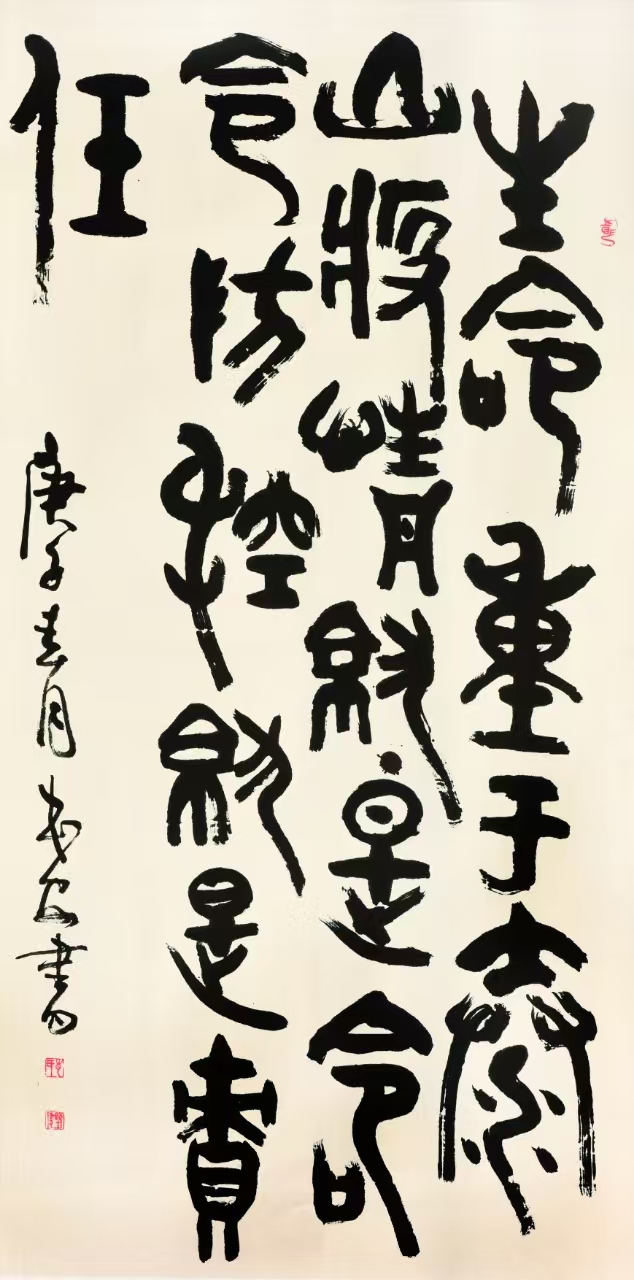 生命重于泰
山疫情就是命
令防控就是責
任
庚子春月書